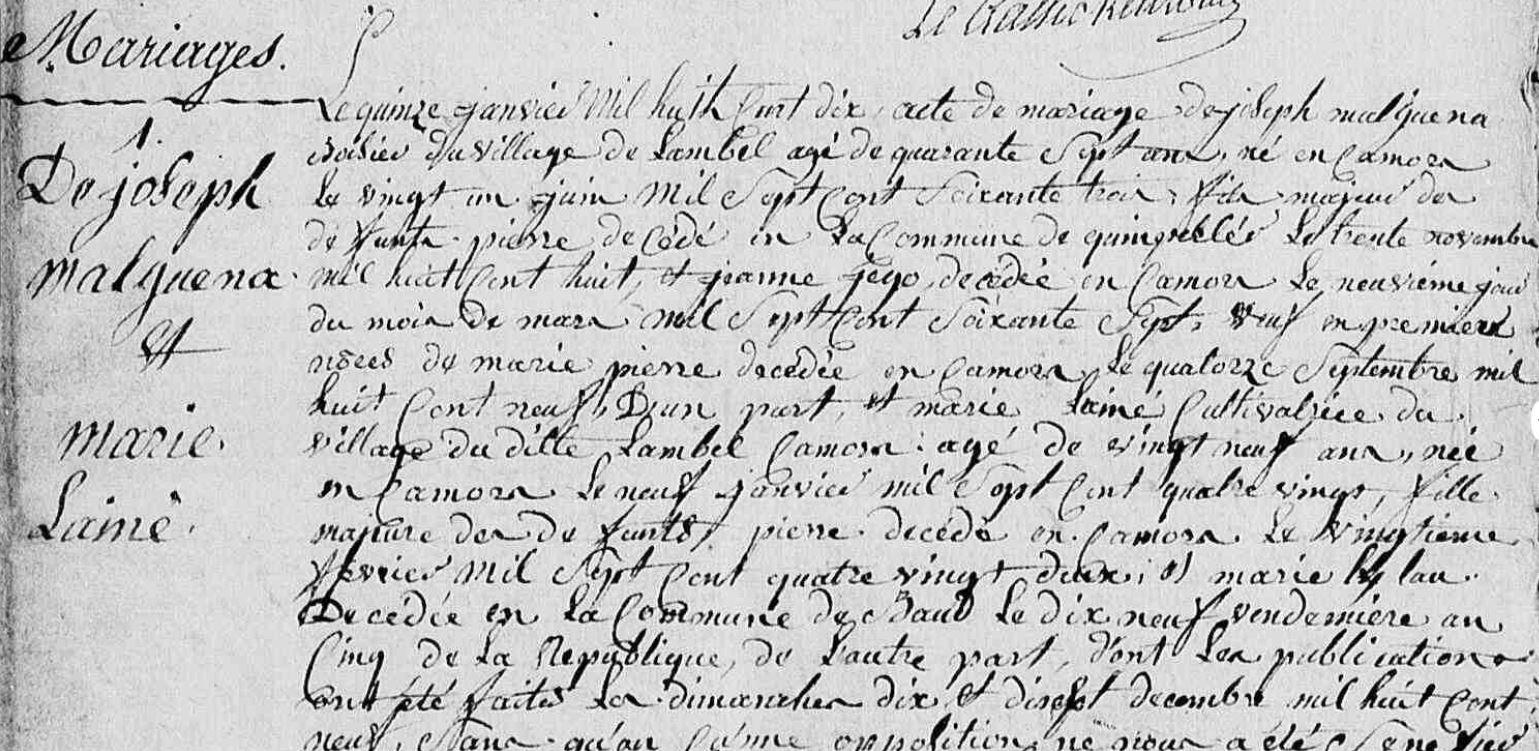 Mariages.
1.
De joseph
malguena
et
marie
Lainé
Le quinze janvier mil huit Cent dix, acte de mariage de joseph malguena
du village de Lambel agé de quarante Sept ans, né en Camors
Le vingt un juin mil Sept Cent Soixante trois, fils majeur des
defunts pierre decédé en La Commune de Le trente novembre
mil huit Cent huit, et jeanne jego decedée en Camors Le neuvieme jour
du mois de mars mil Sept Cent Soixante Sept, veuf en premiere
de marie pierre decedée en Camors Le quatorze Septembre mil
huit Cent neuf, D'un part, et marie Lainé Cultivatrice du
village du ditte Lambel Camors agé de vingt neuf ans, née
en Camors Le neuf janvier mil Sept Cent quatre vingt, fille
majeure des defunts pierre decédé en Camors Le vingtieme
fevrier mil Sept Cent quatre vingt deux, et marie
Decedée en La Commune de Baud Le dix neuf vendemiere an
Cinq de La Republique, de L'autre part, d'ont Les publications
ont été faites Les dimanches dix et disept decembre mil huit Cent
neuf, Sans qu'au opposition ne nous a été